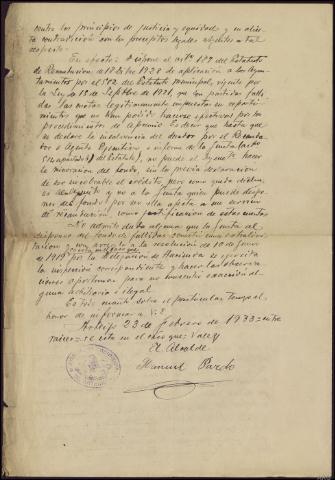 contra los principios de justicia y equidad y en abier-
ta contradicción con los preceptos legales vigentes a tal
respecto.
En efecto: dispone el artº 187 del Estatuto
de Recaudación de 18 Dbre 1928 de aplicación a los Ayun-
tamientos por el 502 del Estatuto Municipal, vigente por
la Ley de 15 de Sepbre de 1931, que son partidas falli-
das las cuotas legítimamente impuestas en reparti-
mientos que no han podido hacerse efectivas por los
procedimientos de apremio. Es decir que hasta que
se declare la insolvencia del deudor por el Recauda-
dor o Agente Ejecutivo e informe de la Junta
del Estatuto), no puede el Ayuntº. hacer
la minoración del fondo, sin la previa declaración
de ser incobrable el crédito, pero como queda
es al Ayuntº y no a la Junta quien puede dispo-
ner del fondo, por no ella afecta a una comisión
de recaudación como justificación de estas cuotas
No admite duda alguna que la Junta al
disponer del fondo de fallidas
y con arreglo a la resolución de 10 de Junio
de 1919 por la Delegación de Hacienda se ejercita
la inspección correspondiente y hacer las observa-
ciones oportunas para no consentir exacción al-
guna arbitraria e ilegal.
Es tres cuanto sobre el particular tengo el
honor de informar a V.E.
Arteijo 23 de febrero de 1933 = entre
El Alcalde
Manuel Pardo